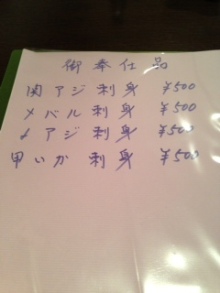 御奉仕品
関アジ刺身 ¥500
メバル刺身 ¥500
〃アジ刺身 ¥500
甲いか刺身 ¥500